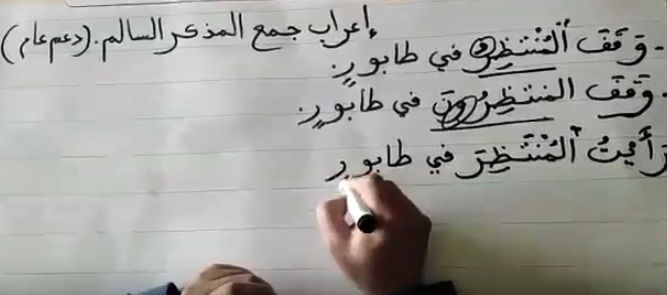 إعراب جمع المذكر السالم. (دعم عام)
- وَقَفَ ٱلْمُنْتَظِرُ في طابورٍ.
- وَقَفَ المنتظِرُونَ في طابورٍ.
رَأَيْتُ ٱلْمُنْتَظِرَ في طابور